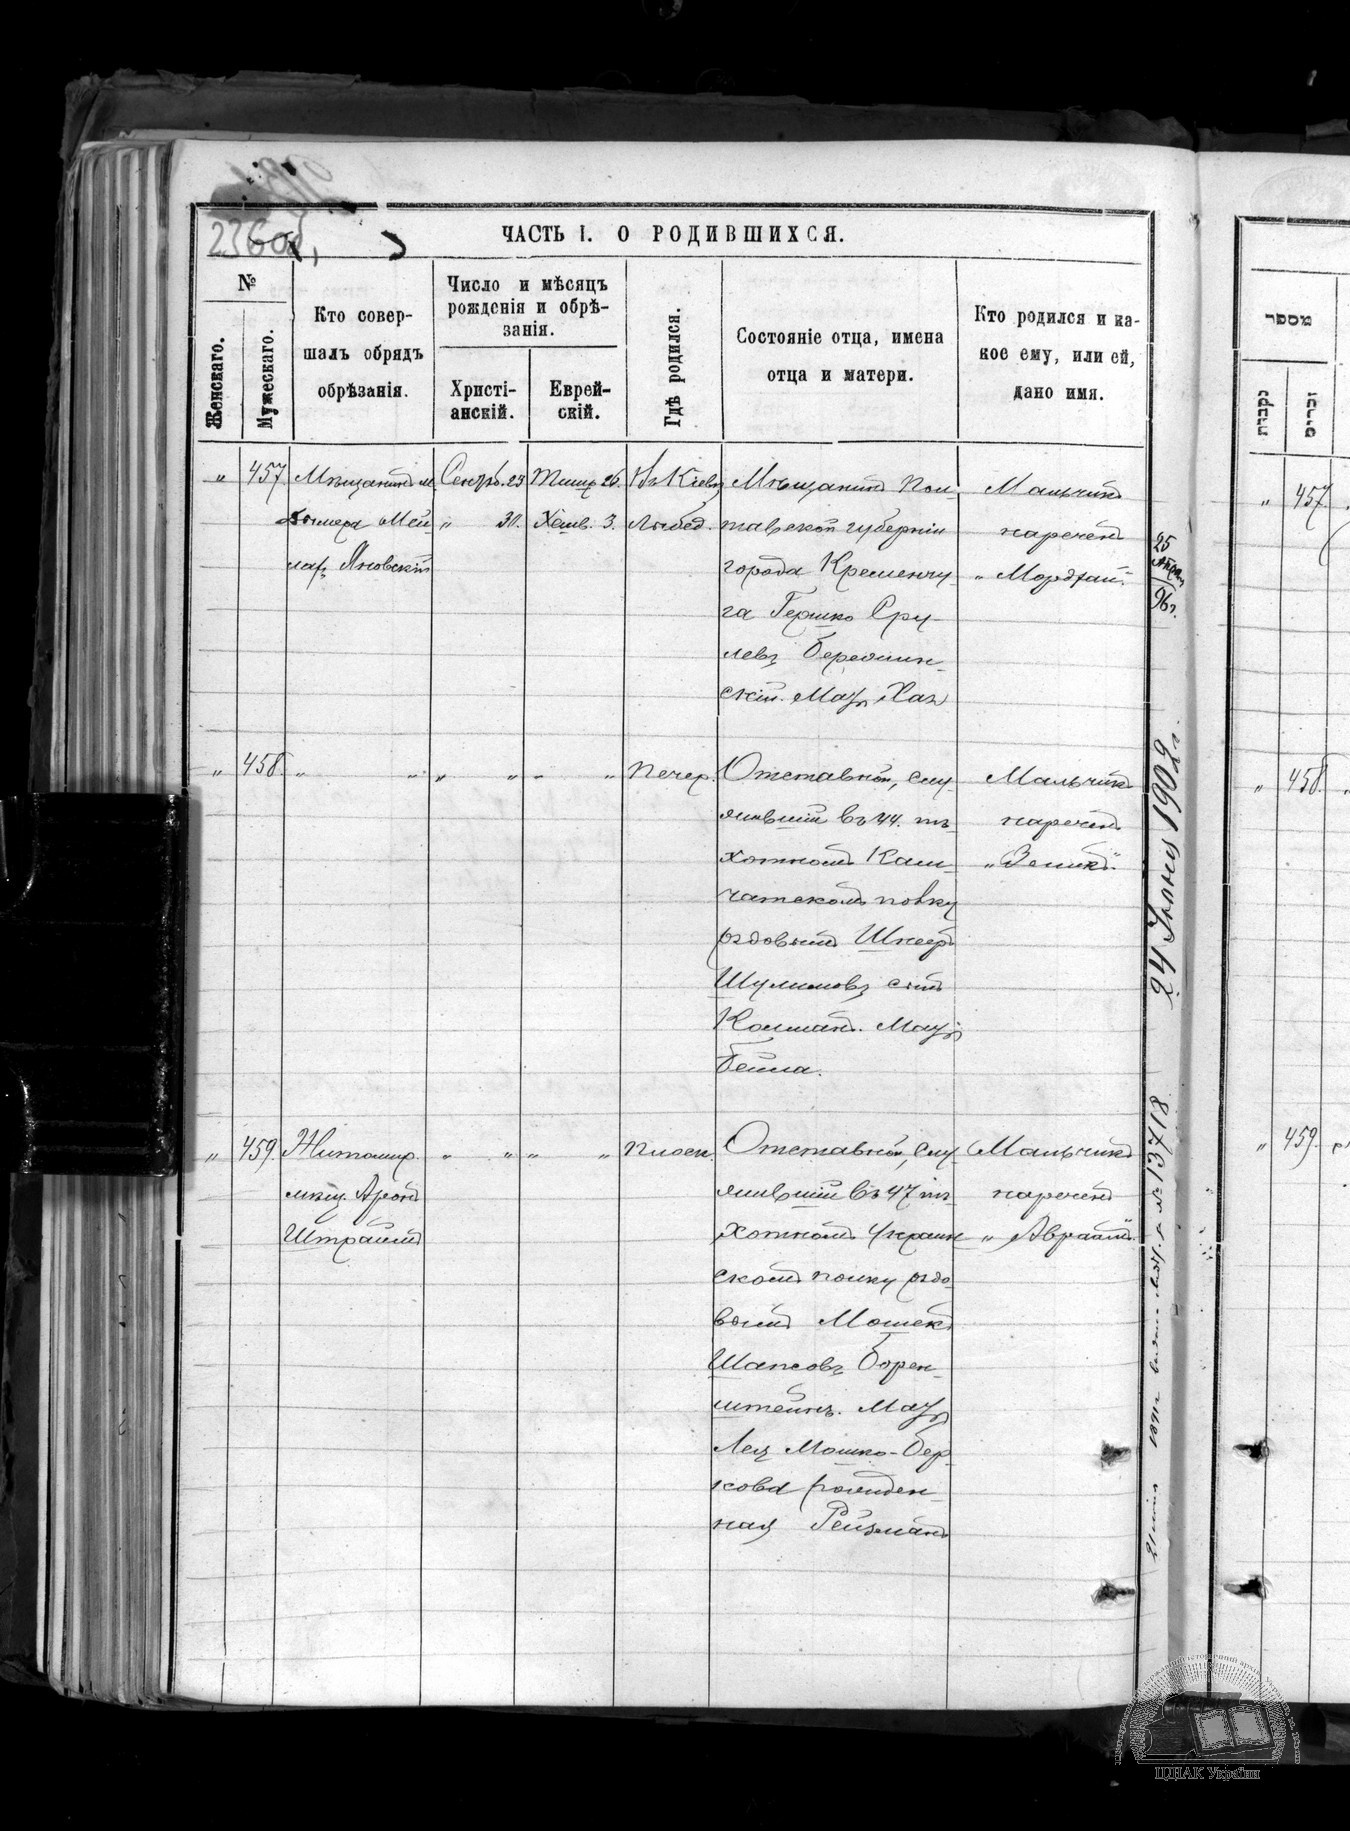 236об,
ЧАСТЬ I. О РОДИВШИХСЯ.
№
Женскаго.
Мужескаго.
Кто совер-
шалъ обрядъ
обрѣзанія.
Число и мѣсяцъ
рожденія и обрѣ-
занія.
Христі-
анскій.
Еврей-
скій.
Гдѣ родился.
Состояніе отца, имена
отца и матери.
Кто родился и ка-
кое ему, или ей,
дано имя.
" 457
Мѣщанинъ м.
Мей
лах Яновскій
Сентяб. 23
" 30.
Тишр 26.
Хешв. 3.
Въ Кіевѣ
Лыбед.
Мѣщанинъ Пол-
тавской губерніи
города Кременчу-
га Гершко Сру-
левъ
скій. Мать Хая
Мальчикъ
нареченъ
" Мордхай."
" 458. " " " " " "
Печер.
Отставной, слу-
жившій въ 44. пѣ-
хотномъ Кам-
чатскомъ полку
рядовымъ Шнеер
Шулимовъ сынъ
Колманъ. Мать
Бейла.
Мальчикъ
нареченъ
" Зеликъ."
" 459.
Житомир.
мѣщ. Аронъ
Штраймъ
" " " "
Плоск.
Отставной, слу-
жившій въ 47 пѣ-
хотномъ Украин-
скомъ полку рядо-
вымъ Мошекъ
Шапсовъ Борен-
штейнъ. Мать
Лея Мошко-Бер-
кова рожден-
ная Рейзманъ
Мальчикъ
нареченъ
" Авраамъ."
25
Апрѣл
96г.
24 Іюня 1902г.
21 іюня 1891г № 13718
מספר
נקבות
זכרים
" 457
" 458.
" 459.
ЦДІАК України